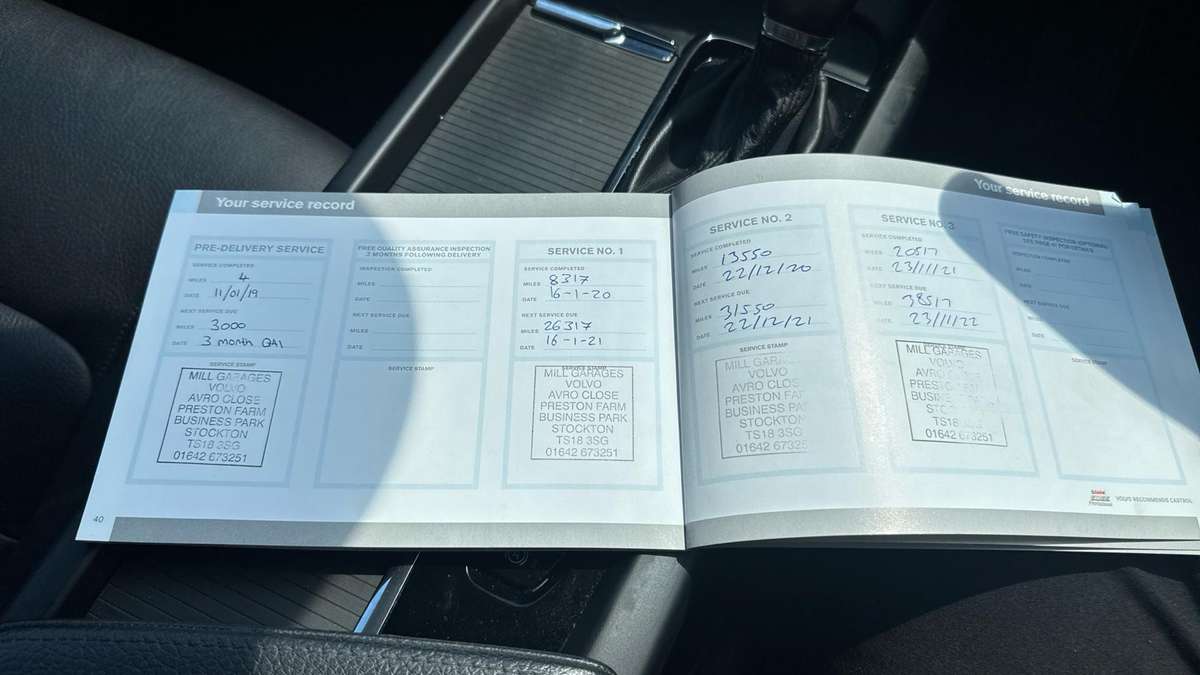 Your service record
PRE-DELIVERY SERVICE
SERVICE COMPLETED
MILES 4
DATE 11/01/19
NEXT SERVICE DUE
MILES 3000
DATE 3 month QAI
SERVICE STAMP
MILL GARAGES
VOLVO
AVRO CLOSE
PRESTON FARM
BUSINESS PARK
STOCKTON
TS18 3SG
01642 673251
FREE QUALITY ASSURANCE INSPECTION
3 MONTHS FOLLOWING DELIVERY
INSPECTION COMPLETED
MILES
DATE
NEXT SERVICE DUE
MILES
DATE
SERVICE STAMP
SERVICE NO. 1
SERVICE COMPLETED
MILES 8317
DATE 16-1-20
NEXT SERVICE DUE
MILES 26317
DATE 16-1-21
SERVICE STAMP
MILL GARAGES
VOLVO
AVRO CLOSE
PRESTON FARM
BUSINESS PARK
STOCKTON
TS18 3SG
01642 673251
40
Your service record
SERVICE NO. 2
SERVICE COMPLETED
MILES 13550
DATE 22/12/20
NEXT SERVICE DUE
MILES 31550
DATE 22/12/21
SERVICE STAMP
MILL GARA
VOLVO
AVRO CLOS
PRESTON FAR
BUSINESS PA
STOCKTON
TS18 3SG
01642 67325
SERVICE NO. 3
SERVICE COMPLETED
MILES 20517
DATE 23/11/21
NEXT SERVICE DUE
MILES 38517
DATE 23/11/22
SERVICE STAMP
MILL GARAGES
01642 673251
FREE SAFETY INSPECTION (OPTIONAL)
INSPECTION COMPLETED
MILES
DATE
NEXT SERVICE DUE
MILES
DATE
SERVICE STAMP
VOLVO RECOMMENDS CASTROL